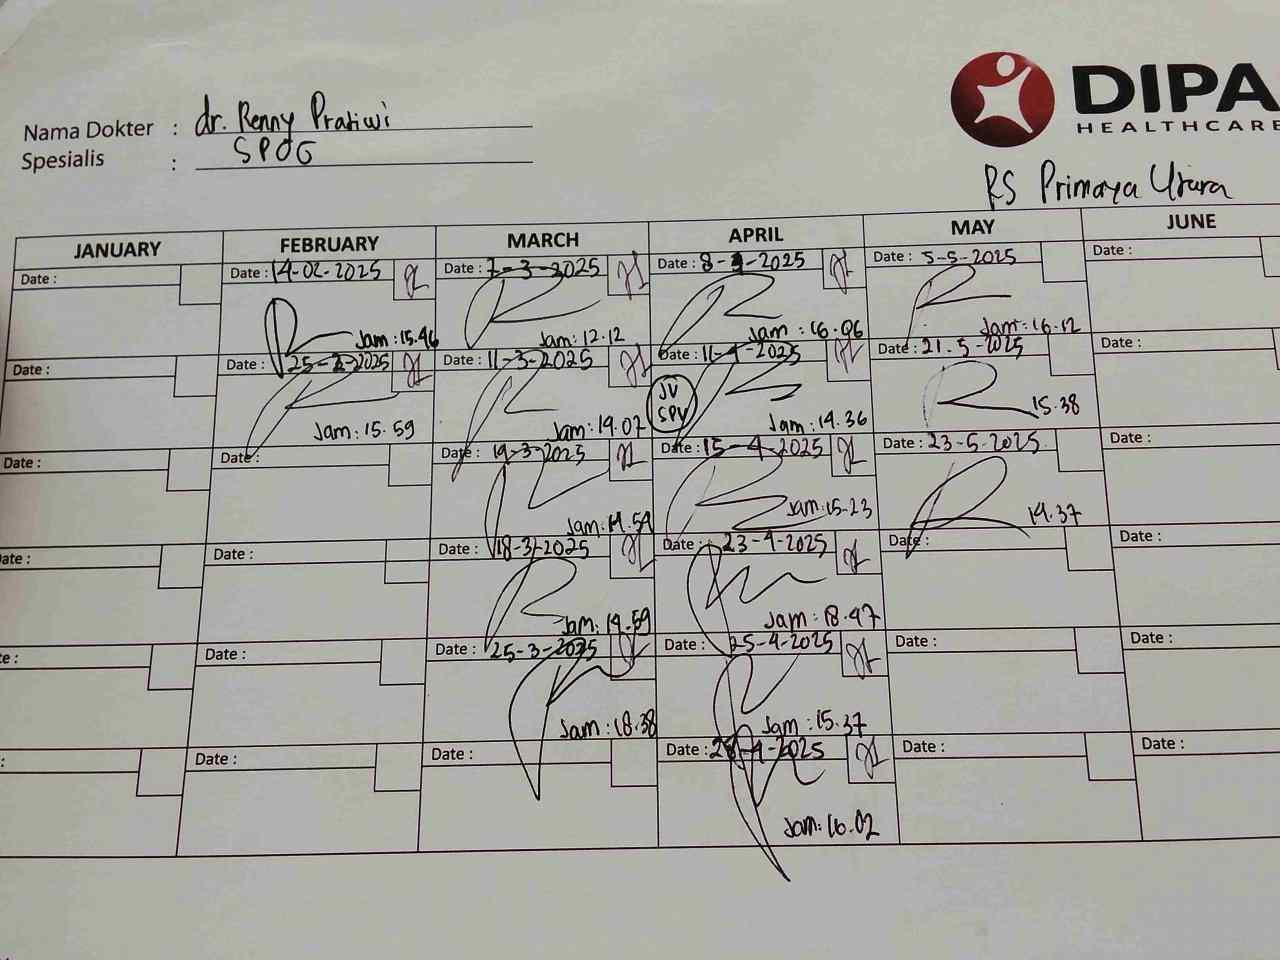 DIPA
HEALTHCARE
Nama Dokter : dr. Renny Pratiwi
Spesialis : SPOG
RS Primaya Utara
JANUARY FEBRUARY MARCH APRIL MAY JUNE
Date : Date : 14-02-2025 Date : 7-3-2025 Date : 8-4-2025 Date : 5-5-2025 Date :
Jam: 15.46 Jam: 12.12 Jam: 16.06 Jam: 16.12
Date : Date : 25-2-2025 Date : 11-3-2025 Date : 11-4-2025 Date : 21.5-2025 Date :
JV
SPV
Jam: 15.59 Jam: 14.07 Jam: 14.36 15.38
Date : Date : Date : 14-3-2025 Date : 15-4-2025 Date : 23-5-2025 Date :
Jam: 14.54 Jam: 15-23 14.37
ate : Date : Date : 18-3-2025 Date : 23-4-2025 Date : Date :
Jam: 14.59 Jam: 18.47
te : Date : Date : 25-3-2025 Date : 25-4-2025 Date : Date :
Jam: 18.38 Jam: 15.37
: Date : Date : Date : 28-4-2025 Date : Date :
Jam: 16.02